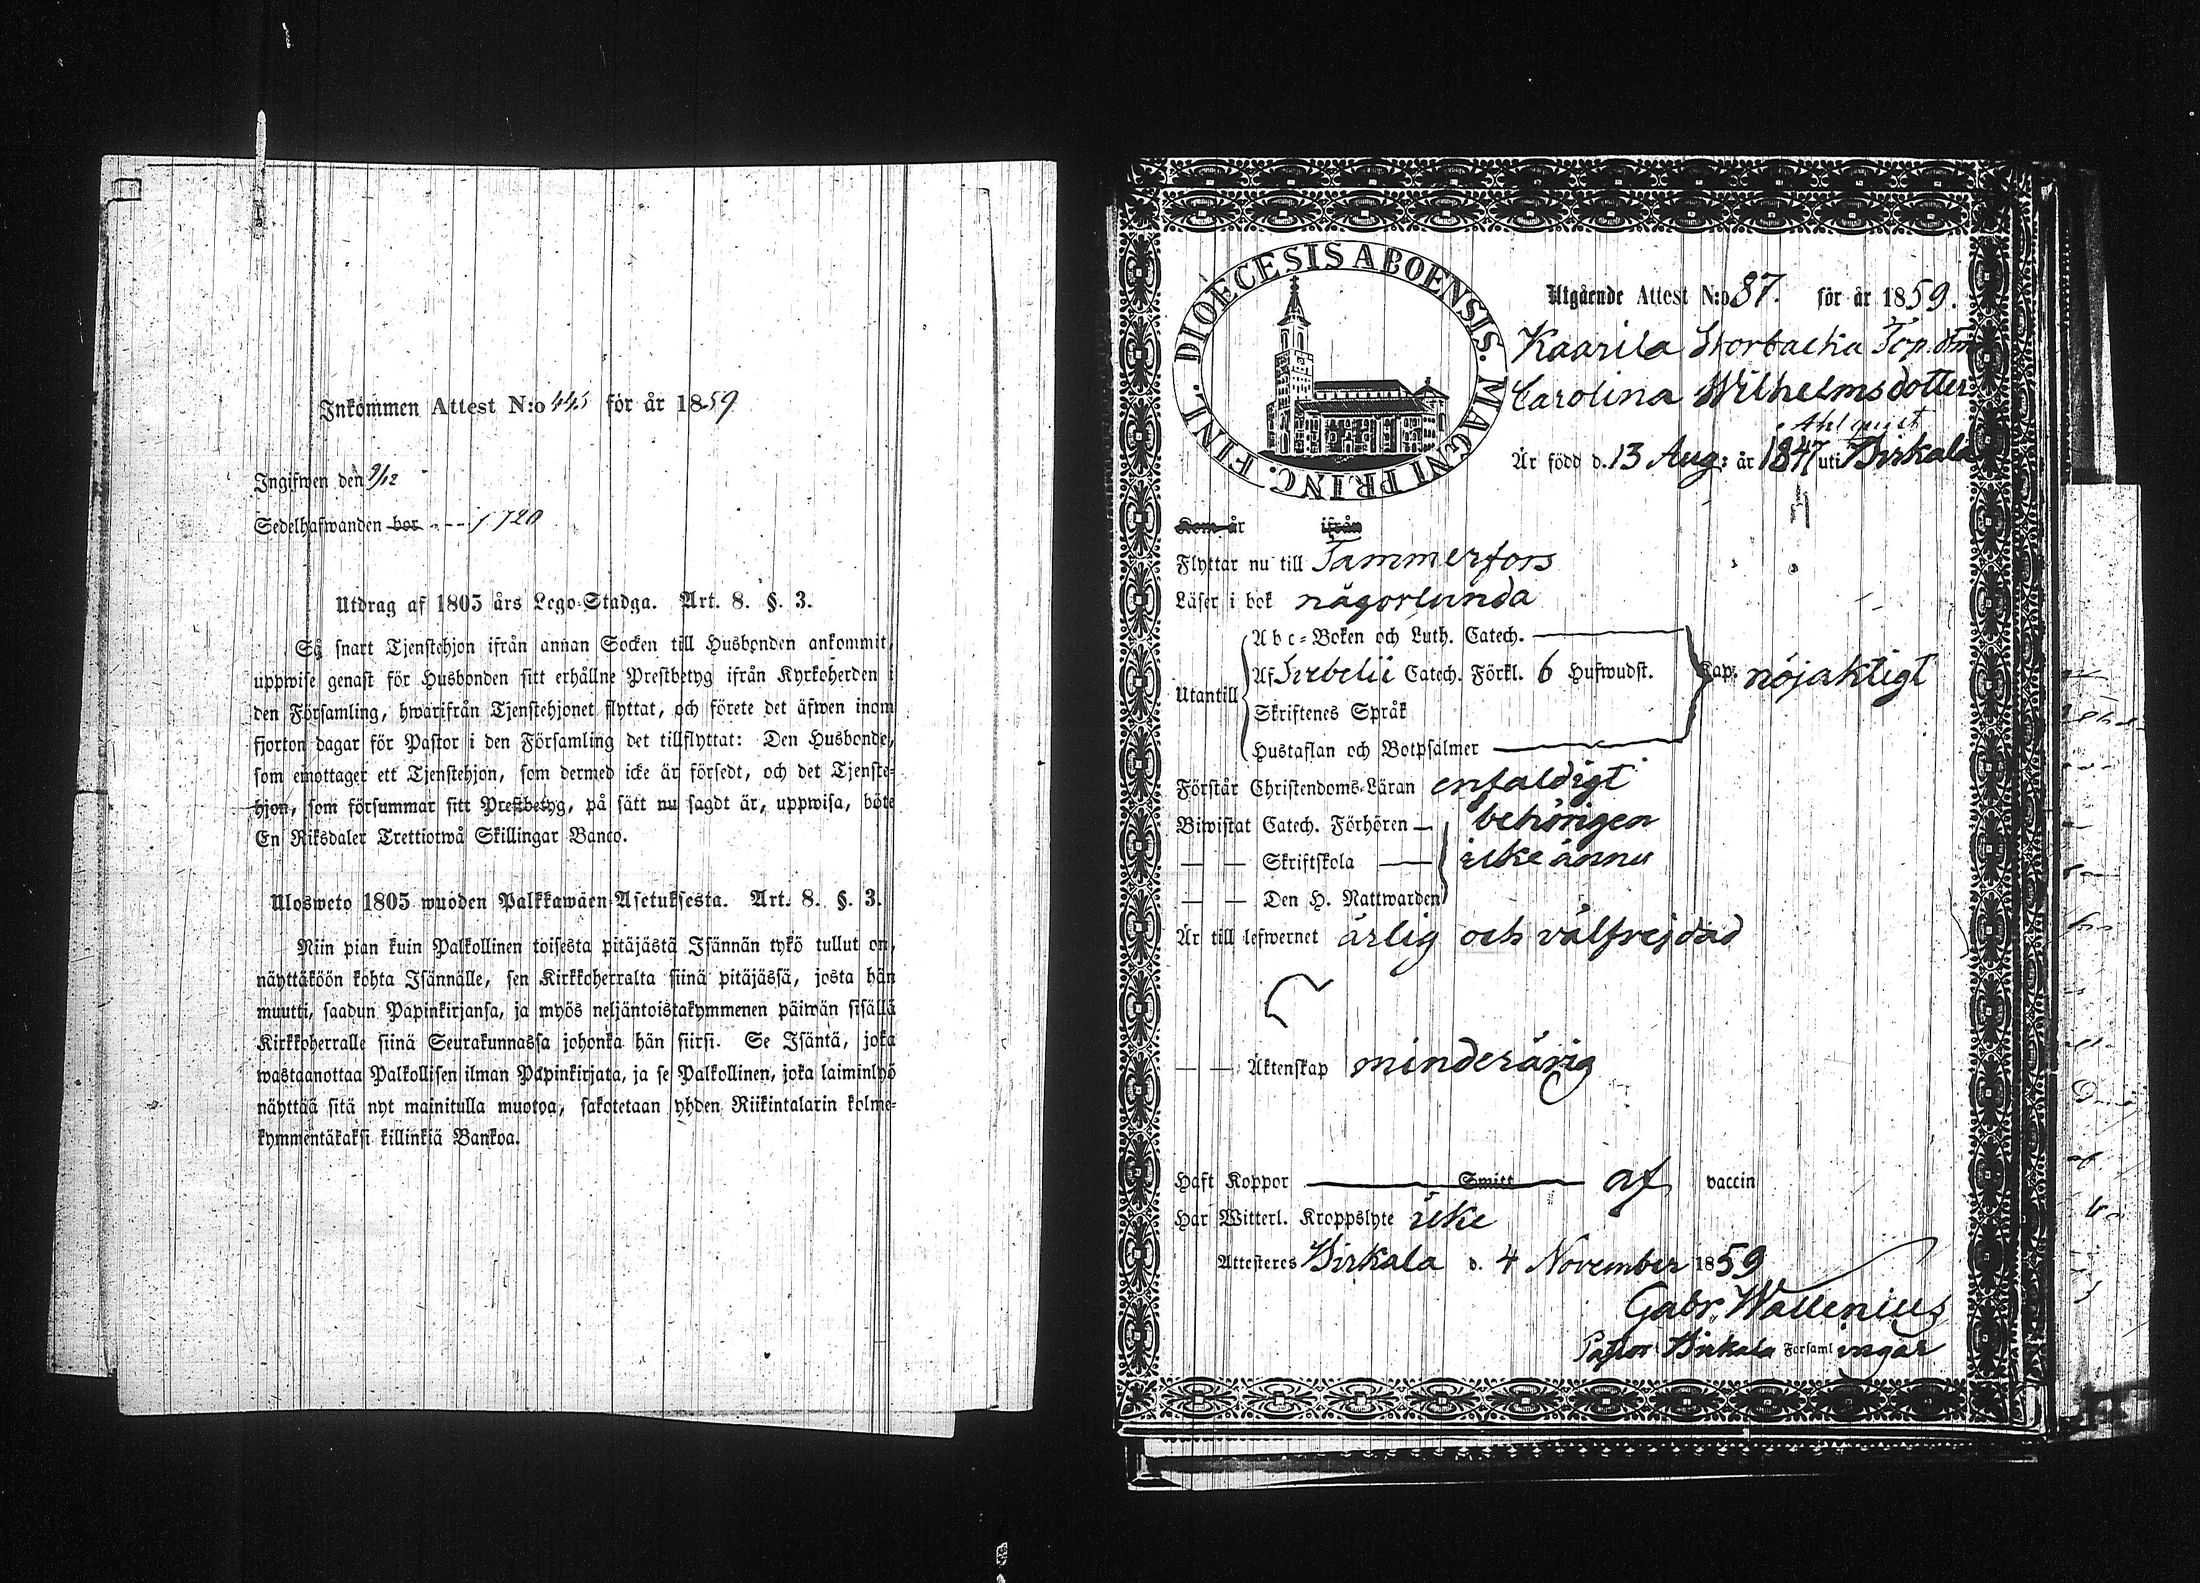 Inkommen Attest N:o 445 för år 1859
Ingifwen den 9/12
Sedelhafwanden bor - - - 1720
Utdrag af 1805 års Lego-Stadga. Art. 8. §. 3.
Så snart Tjenstehjon ifrån annan Socken till Husbonden ankommit,
uppwise genast för Husbonden sitt erhållne Prestbetyg ifrån Kyrkoherden i
den Församling, hwarifrån Tjenstehjonet flyttat, och förete det äfwen inom
fjorton dagar för Pastor i den Församling det tillflyttat: Den Husbonde,
som emottager ett Tjenstehjon, som dermed icke är försedt, och det Tjenste-
hjon, som försummar sitt Prestbetyg, på sätt nu sagdt är, uppwisa, böte
En Riksdaler Trettiotwå Skillingar Banco.
Ulosweto 1805 wuoden Palkkawäen-Asetuksesta. Art. 8. §. 3.
Niin pian kuin Palkollinen toisesta pitäjästä Isännän tykö tullut on,
näyttäköön kohta Isännälle, sen Kirkkoherralta siinä pitäjässä, josta hän
muutti, saadun Papinkirjansa, ja myös neljäntoistakymmenen päiwän sisällä
Kirkkoherralle siinä Seurakunnassa johonka hän siirsi. Se Isäntä, joka
wastaanottaa Palkollisen ilman Papinkirjata, ja se Palkollinen, joka laiminlyö
näyttää sitä nyt mainitulla muotoa, sakotetaan yhden Riikintalarin kolme-
kymmentäkaksi killinkiä Bankoa.
DIOECESIS ABOENSIS. MAGNI PRINC. FINL.
Utgående Attest N:o 87. för år 1859.
Kaarila Storbacka Torp. dtr
Carolina Wilhelmsdotter
Ahlquist
Är född d. 13 Aug: år 1847 uti Birkala
Kom år ifrån
Flyttar nu till Tammerfors
Läser i bok någorlunda
Abc-Boken och Luth. Catech.
Utantill Af Svebelii Catech. Förkl. 6 Hufwudst. Cap. nöjaktigt
Skriftenes Språk
Hustaflan och Botpsalmer
Förstår Christendoms-Läran enfaldigt
Biwistat Catech. Förhören — behörigen
— — Skriftskola — icke ännu
— — Den H. Nattwarden
Är till lefwernet ärlig och välfrejdad
— — Äktenskap minderårig
Haft Koppor Smitt af vaccin
Har Witterl. Kroppslyte icke
Attesteres Birkala d. 4 November 1859
Gabr. Wallenius
Pastor i Birkala Församlingar